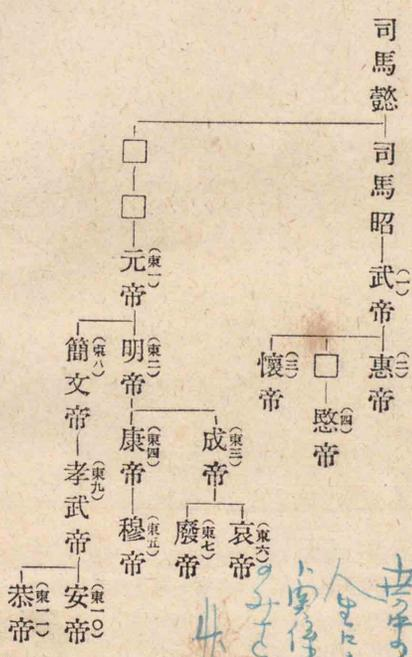 司馬懿
司馬昭
(一)武帝
(二)惠帝
□
(四)愍帝
(三)懷帝
□
□
(東一)元帝
(東二)明帝
(東三)成帝
(東六)哀帝
(東七)廢帝
(東四)康帝
(東五)穆帝
(東八)簡文帝
(東九)孝武帝
(東一〇)安帝
(東一一)恭帝
世の中の
人生に
関係
のみを